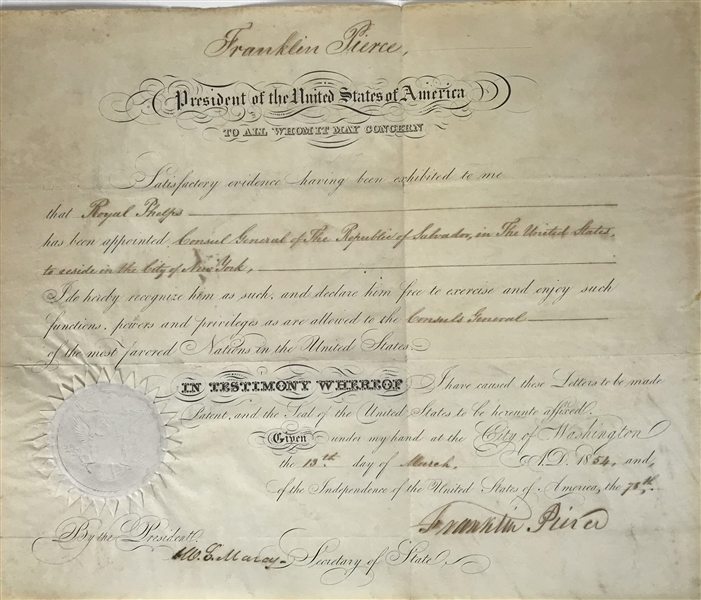 Franklin Pierce,
President of the United States of America
TO ALL WHOM IT MAY CONCERN
Satisfactory evidence having been exhibited to me
that Royal Phelps
has been appointed Consul General of The Republic of Salvador, in The United States,
to reside in the City of New York,
I do hereby recognize him as such, and declare him free to exercise and enjoy such
functions, powers and privileges as are allowed to the Consuls General
of the most favored Nations in the United States.
IN TESTIMONY WHEREOF I have caused these Letters to be made
Patent, and the Seal of the United States to be hereunto affixed.
Given under my hand at the City of Washington
the 13th day of March, A.D. 1854, and
of the Independence of the United States of America, the 78th.
Franklin Pierce
By the President.
W. L. Marcy Secretary of State.